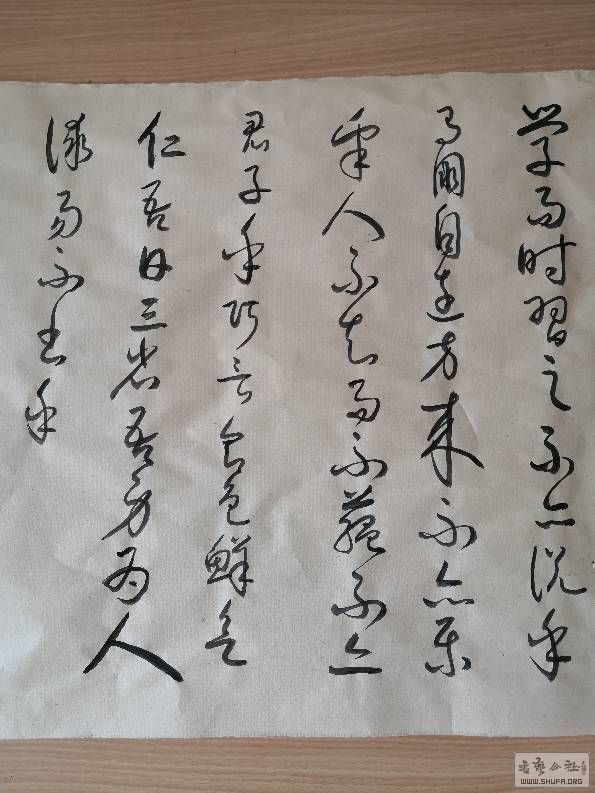 学而时習之不亦说乎
有朋自远方来不亦乐
乎人不知而不蕴不亦
君子乎巧言令色鲜矣
仁吾日三省吾身为人
谋而不忠乎
书艺公社
WWW.SHUFA.ORG